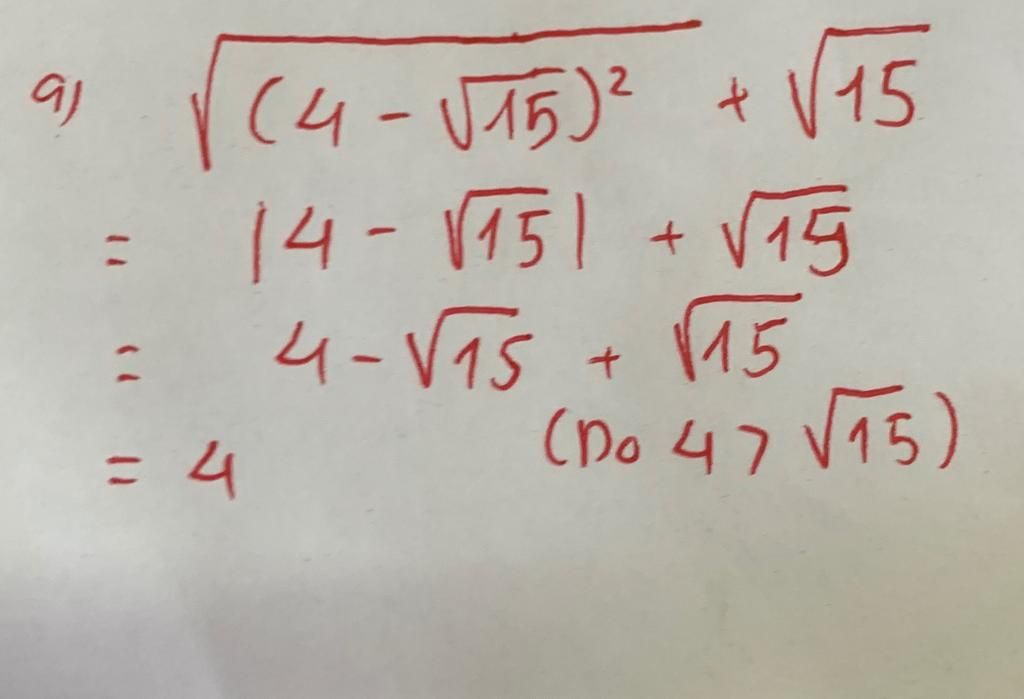 a) √(4 - √15)² + √15
= |4 - √15| + √15
= 4 - √15 + √15
= 4 (Do 4 > √15)